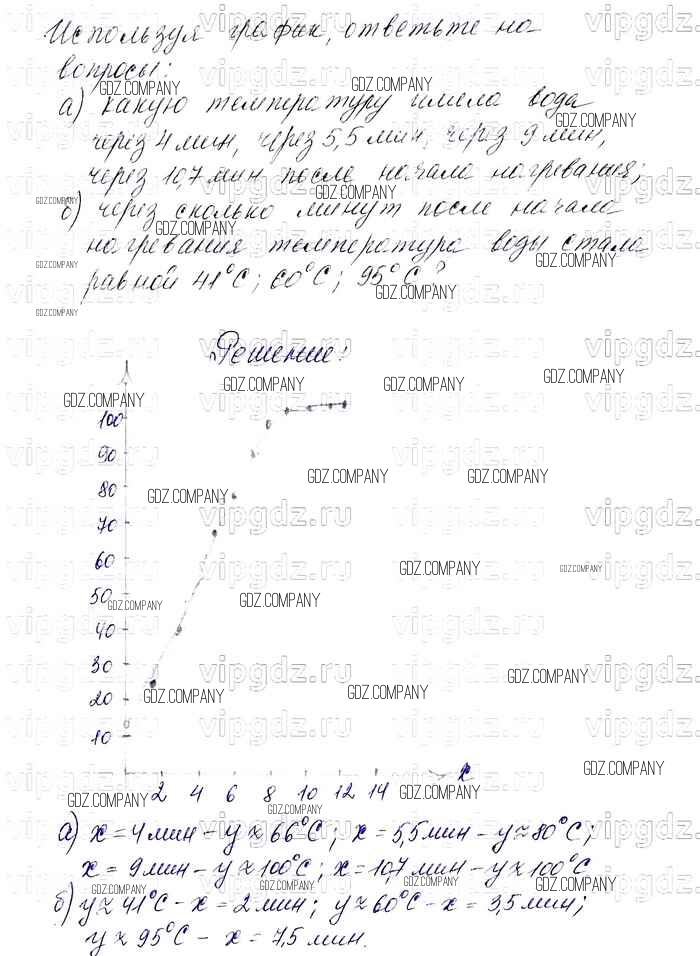 Используя график, ответьте на
вопросы:
а) какую температуру имела вода
через 4 мин, через 5,5 мин, через 9 мин,
через 10,7 мин после начала нагревания;
б) через сколько минут после начала
нагревания температура воды стала
равной 41°С; 60°С; 95°С?
Решение:
100
90
80
70
60
50
40
30
20
10
2 4 6 8 10 12 14 x
а) x = 4 мин – y ≈ 66°С; x = 5,5 мин – y ≈ 80°С;
x = 9 мин – y ≈ 100°С; x = 10,7 мин – y ≈ 100°С
б) y ≈ 41°С – x = 2 мин; y ≈ 60°С – x = 3,5 мин;
y ≈ 95°С – x = 7,5 мин.
GDZ.COMPANY
vipgdz.ru